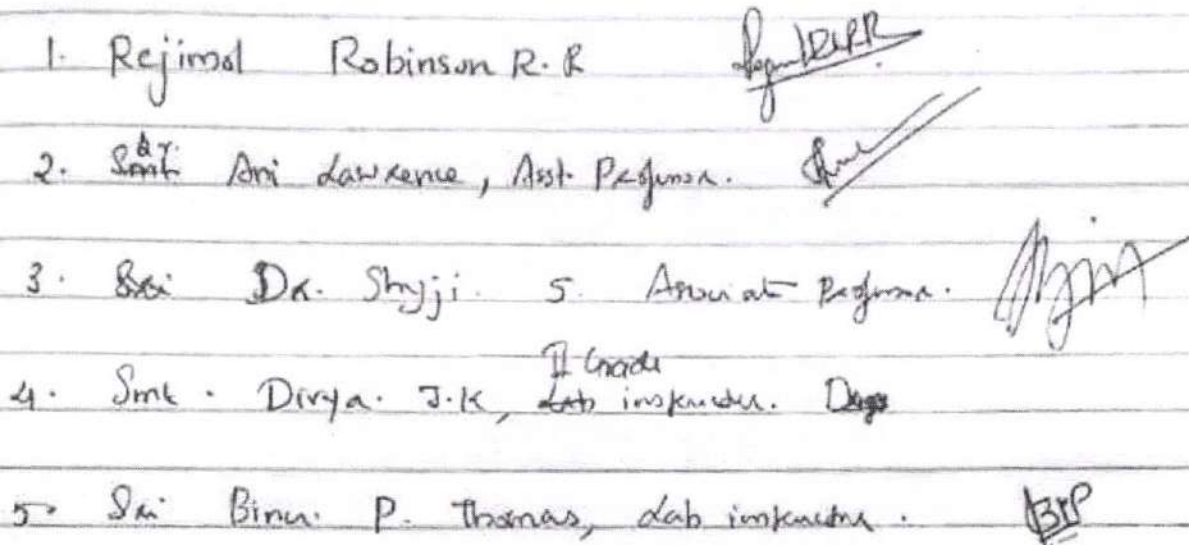 1. Rejimol Robinson R. R
2. Smt. Dr. Ani Lawrence, Asst. Professor.
3. Sri Dr. Shyji. S. Associat Professor.
II Grade
4. Smt. Divya. J.K, Lab instructor.
5. Sri Binu. P. Thomas, Lab instructor.